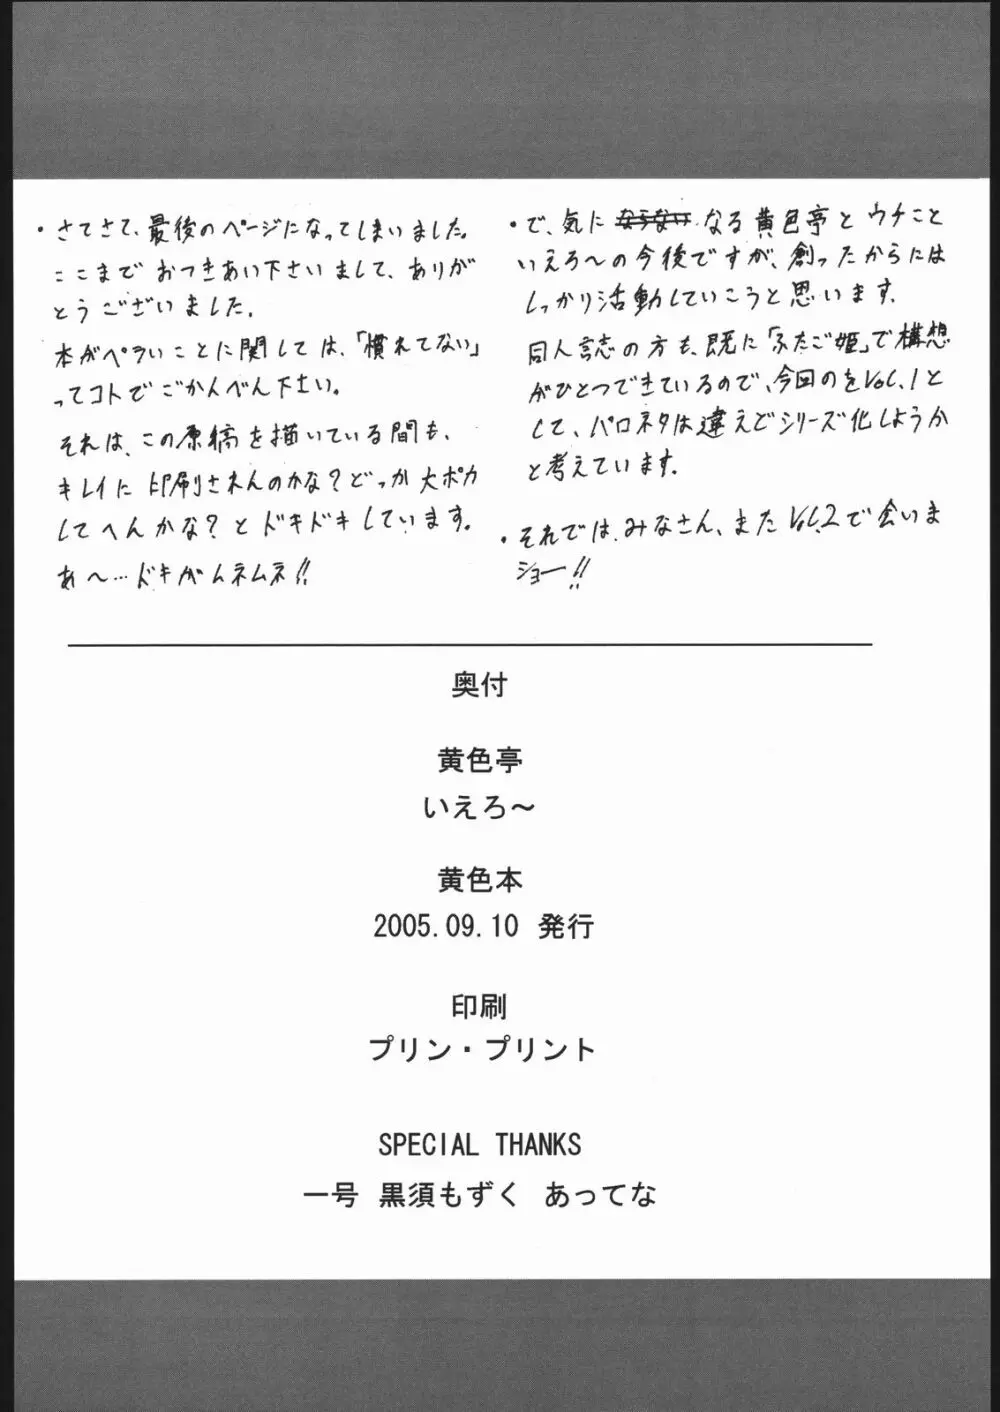 ・さてさて、最後のページになってしまいました。
ここまでおつきあい下さいまして、ありが
とうございました。
本がペラいことに関しては、「慣れてない」
ってコトでごかんべん下さい。
それは、この原稿を描いている間も、
キレイに印刷されんのかな?どっか大ポカ
してへんかな?とドキドキしています。
あ〜…ドキがムネムネ!!
・で、気にならないなる黄色亭とウチこと
いえろ〜の今後ですが、創ったからには
しっかり活動していこうと思います。
同人誌の方も、既に「ふたご姫」で構想
がひとつできているので、今回のをVol.1と
して、パロネタは違えどシリーズ化しようか
と考えています。
・それでは、みなさん、またVol.2で会いま
ショー!!
奥付
黄色亭
いえろ〜
黄色本
2005.09.10 発行
印刷
プリン・プリント
SPECIAL THANKS
一号 黒須もずく あってな